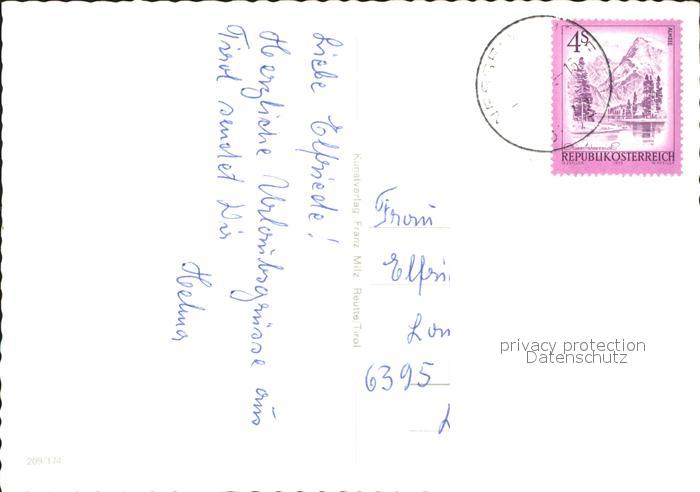 Liebe Elfriede!
Herzliche Urlaubsgrüsse aus
Tirol sendet Dir
Helma
Kunstverlag Franz Milz, Reutte Tirol
Frau
Elfri
6395
4 S
ALMSEE
REPUBLIK ÖSTERREICH
privacy protection
Datenschutz
209/174